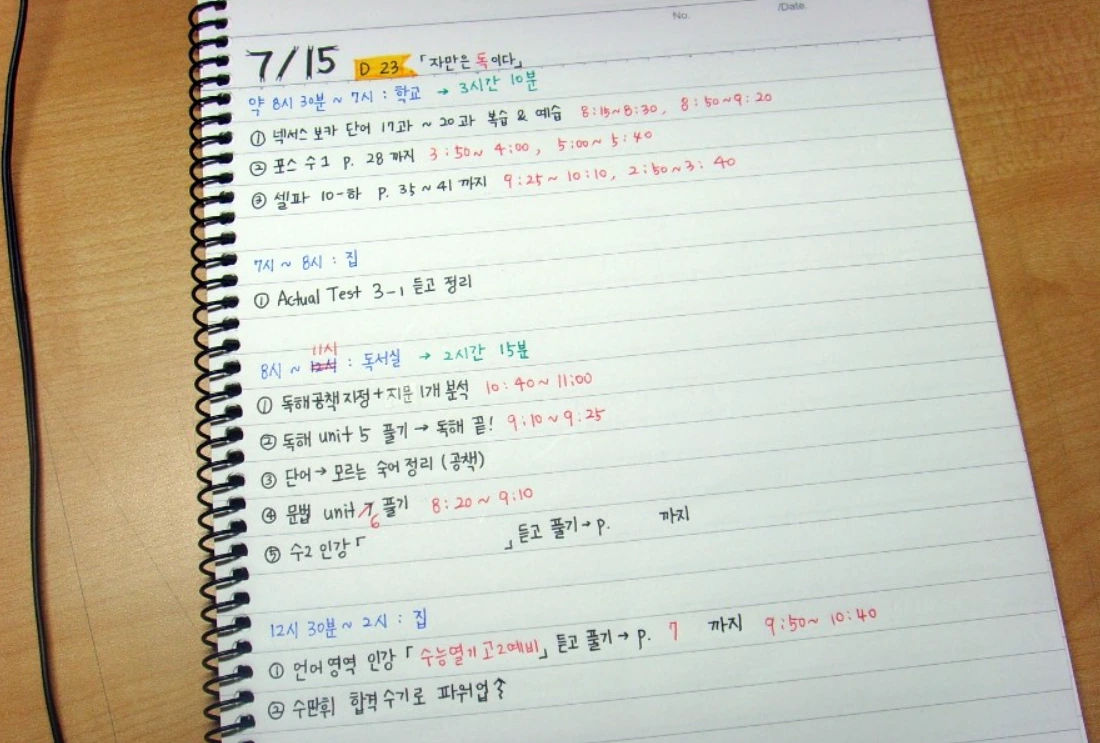 No. /Date
7/15 D 23 「자만은 독이다」
약 8시 30분 ~ 7시 : 학교 → 3시간 10분
① 넥서스 보카 단어 17과 ~ 20과 복습 & 예습 8:15~8:30, 8:50~9:20
② 포스 수1 p. 28 까지 3:50~ 4:00, 5:00~ 5:40
③ 셀파 10-하 p. 35 ~ 41 까지 9:25~ 10:10, 2:50~3:40
7시 ~ 8시 : 집
① Actual Test 3-1 듣고 정리
11시
8시 ~ 12시 : 독서실 → 2시간 15분
① 독해공책 지정 + 지문 1개 분석 10:40~ 11:00
② 독해 unit 5 풀기 → 독해 끝! 9:10 ~ 9:25
③ 단어 → 모르는 숙어 정리 (공책)
④ 문법 unit 7 풀기 8:20 ~ 9:10
6
⑤ 수2 인강「 」듣고 풀기 → p. 까지
12시 30분 ~ 2시 : 집
① 언어영역 인강 「수능열기 고2예비」 듣고 풀기 → p. 7 까지 9:50~ 10:40
② 수만휘 합격수기로 파워업